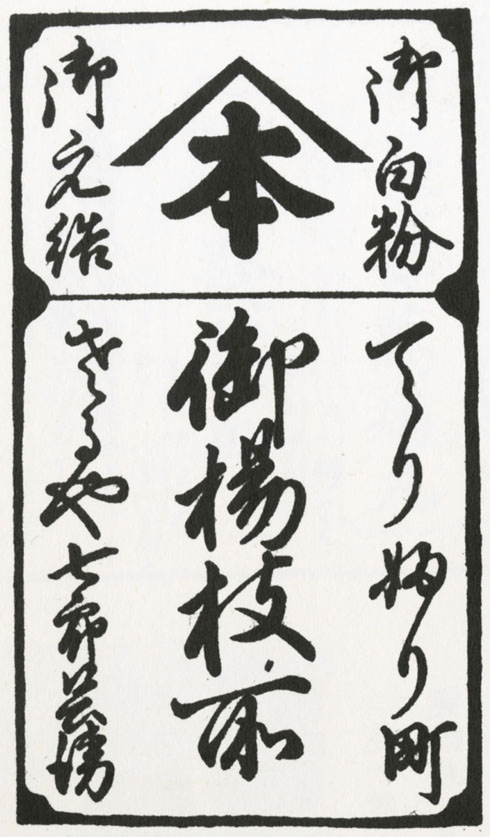 御白粉
本
御元結
てりふり町
御楊枝所
さるや七郎兵衛